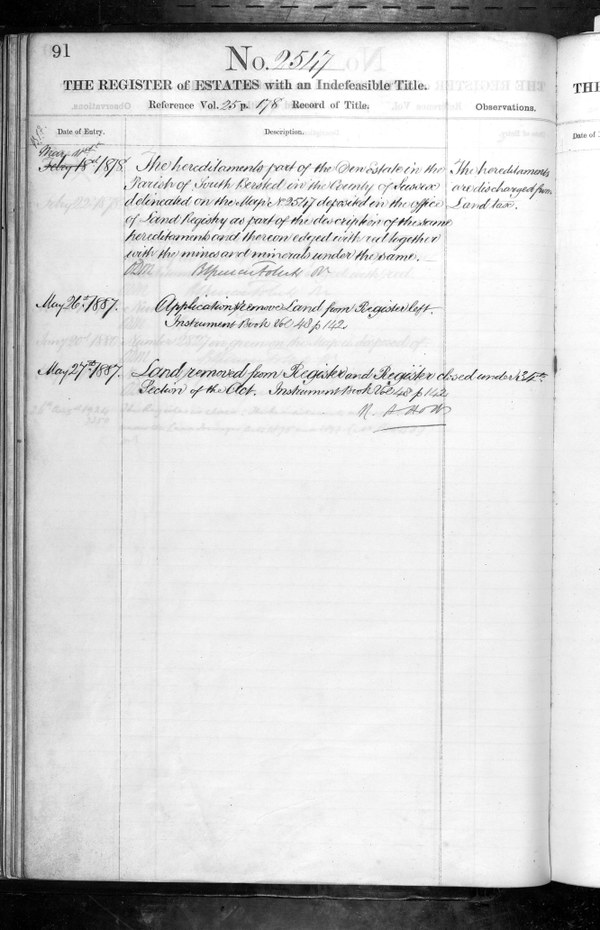 91
No. 2547
THE REGISTER of ESTATES with an Indefeasible Title.
Reference Vol. 25 p. 178 Record of Title.
Observations.
Date of Entry.
Description.
1878
The hereditaments part of the Den Estate in the
Parish of South Bersted in the County of Sussex
delineated on the Map No 2547 deposited in the office
of Land Registry as part of the description of the same
hereditaments and thereon edged with red together
with the mines and minerals under the same.
The hereditaments
are discharged from
Land tax.
May 26th 1887.
Application to remove Land from Register left.
Instrument Book Vol 48 p 142
May 27th 1887.
Land removed from Register and Register closed under 34th
Section of the Act. Instrument Book Vol 48 p 142
THE
Date of